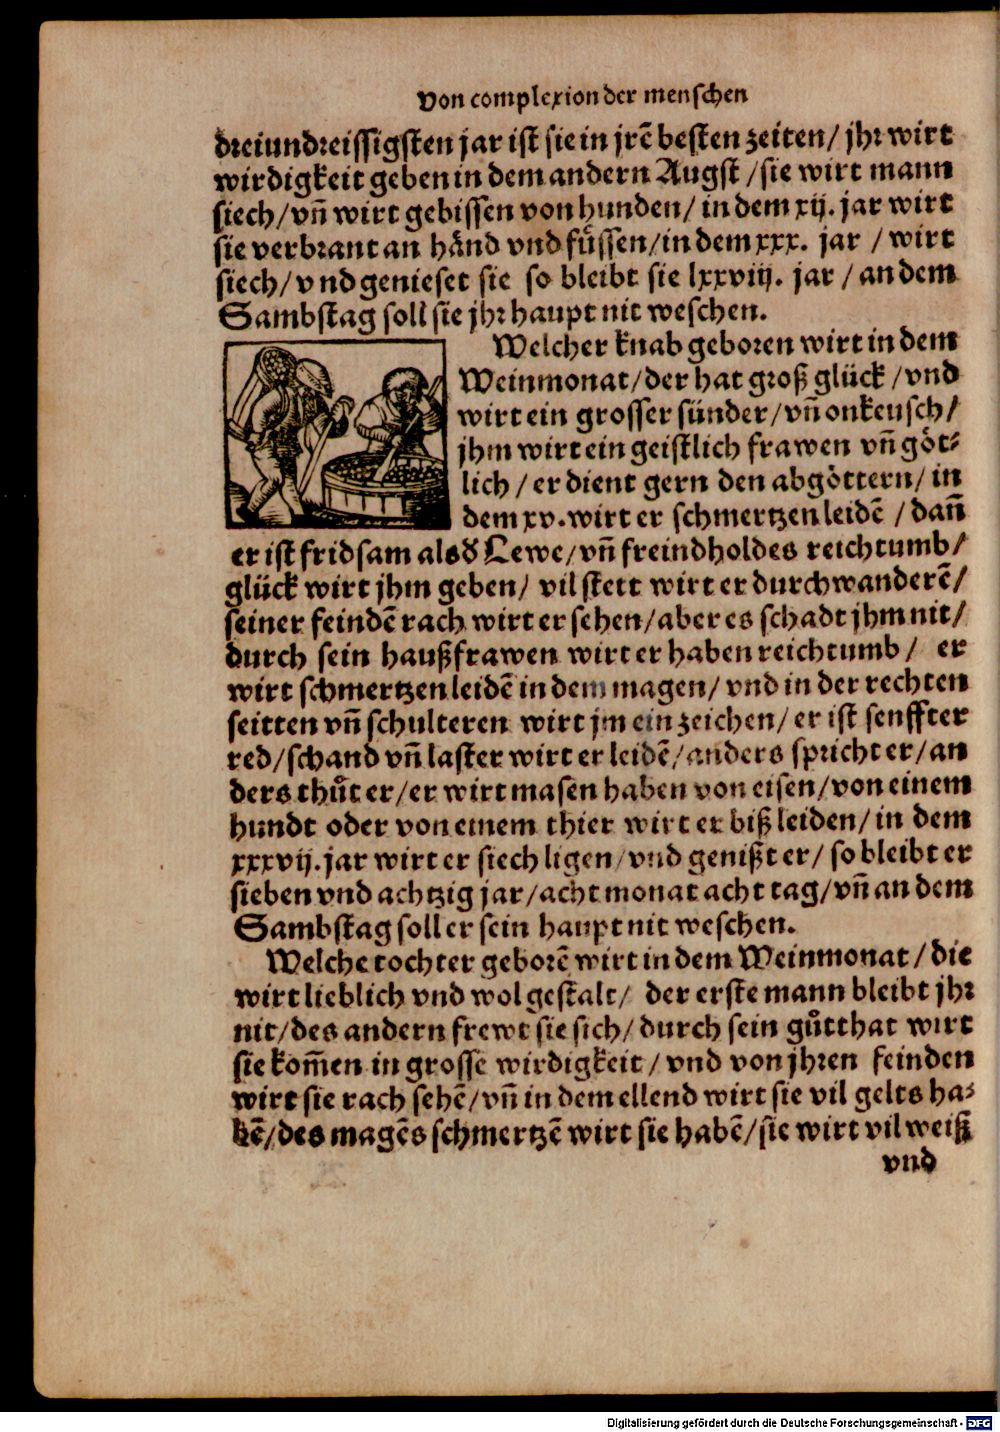 Von complexion der menschen
dreiundreissigsten jar ist sie in jrē besten zeiten/ jhr wirt
wirdigkeit geben in dem andern Augst /sie wirt mann
siech/vñ wirt gebissen von hunden/ in dem xij. jar wirt
sie verbrant an hånd vnd fůssen/in dem xxx. jar / wirt
siech/ vnd genieset sie so bleibt sie lxxviij. jar / an dem
Sambstag soll sie jhr haupt nit weschen.
Welcher knab geboren wirt in dem
Weinmonat/der hat groß glück /vnd
wirt ein grosser sünder/vñ onkeusch/
jhm wirt ein geistlich frawen vñ göt⸗
lich / er dient gern den abgöttern/ in
dem xv. wirt er schmertzen leidē / dañ
er ist fridsam als d Lewe/vñ freindholdes reichtumb/
glück wirt jhm geben/ vil stett wirt er durchwanderē/
seiner feindē rach wirt er sehen/aber es schadt jhm nit/
durch sein haußfrawen wirt er haben reichtumb/ er
wirt schmertzen leidē in dem magen/ vnd in der rechten
seitten vñ schulteren wirt jm ein zeichen/ er ist senffter
red/schand vñ laster wirt er leidē/anders spricht er/an
ders thůt er/er wirt masen haben von eisen/von einem
hundt oder von einem thier wirt er biß leiden/in dem
xxxvij. jar wirt er siech ligen/vnd genißt er/ so bleibt er
sieben vnd achtzig jar/acht monat acht tag/vñ an dem
Sambstag soll er sein haupt nit weschen.
Welche tochter geborē wirt in dem Weinmonat /die
wirt lieblich vnd wolgestalt/ der erste mann bleibt jhr
nit/des andern frewt sie sich/durch sein gůtthat wirt
sie kom̄en in grosse wirdigkeit / vnd von jhren feinden
wirt sie rach sehē/vñ in dem ellend wirt sie vil gelts ha⸗
bē/des magēs schmertzē wirt sie habē/sie wirt vil weiß
vnd
Digitalisierung gefördert durch die Deutsche Forschungsgemeinschaft - DFG